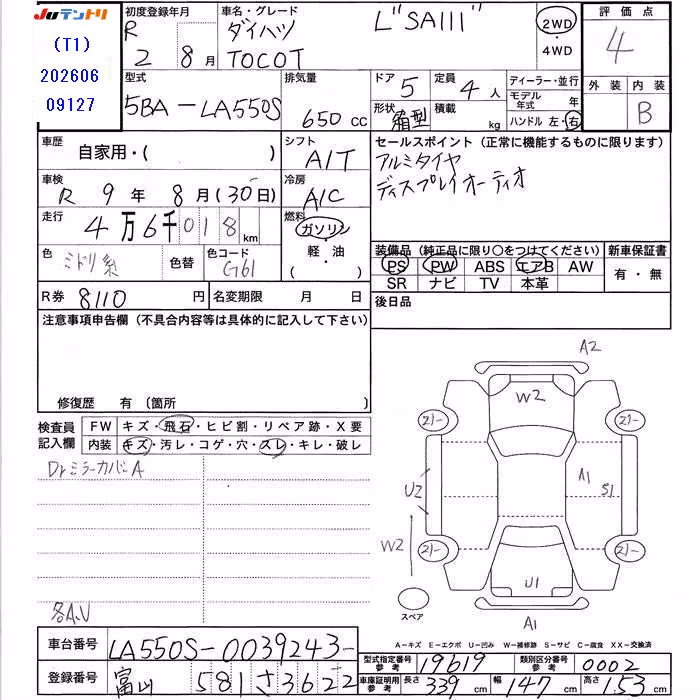 JUテントリ
(T1)
202606
09127
初度登録年月
R
2 8月
車名・グレード
ダイハツ L"SAIII"
TOCOT
2WD
・4WD
評価点
4
外装 内装
B
型式
5BA-LA550S
排気量
650 cc
ドア 5
定員 4人
形状 箱型
積載 kg
ディーラー・並行
モデル年式 年
ハンドル 左・右
車歴
自家用・( )
シフト
A/T
車検
R 9年 8月(30日)
冷房
A/C
走行
4万6千018km
燃料
ガソリン
・軽・油
( )
色
ミドリ系
色替
色コード
G61
セールスポイント(正常に機能するものに限ります)
アルミタイヤ
ディスプレイオーディオ
装備品(純正品に限り○をつけてください)
新車保証書
PS PW ABS エアB AW
有・無
SR ナビ TV 本革
後日品
R券 8110 円
名変期限 月 日
注意事項申告欄(不具合内容等は具体的に記入して下さい)
修復歴 有(箇所 )
検査員
記入欄
FW キズ・飛石・ヒビ割・リペア跡・X要
内装 キズ・汚レ・コゲ・穴・スレ・キレ・破レ
Drミラーカバー A
各A.U
A2
W2
21-
21-
A1
S1
U2
W2
21-
21-
U1
スペア
A1
A-キズ E-エクボ U-凹み W-補修跡 S-サビ C-腐食 XX-交換済
車台番号
LA550S-0039243-
登録番号
富山 581 さ 3622
型式指定番号 参考 19619
類別区分番号 参考 0002
車庫証明用 参考 長さ 339cm 幅 147cm 高さ 153cm